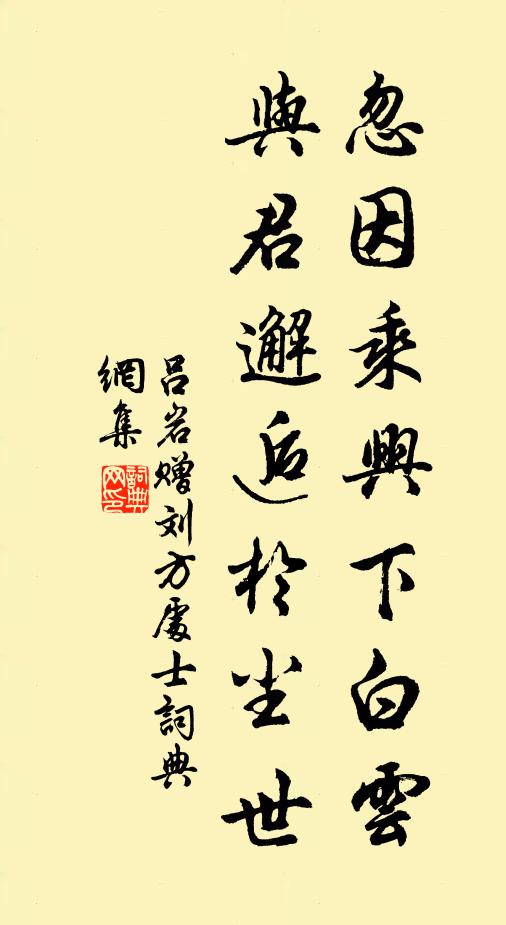 忽因乘興下白雲
與君邂逅於尘世
吕岩赠刘方處士詞典
網集
詞典
网印